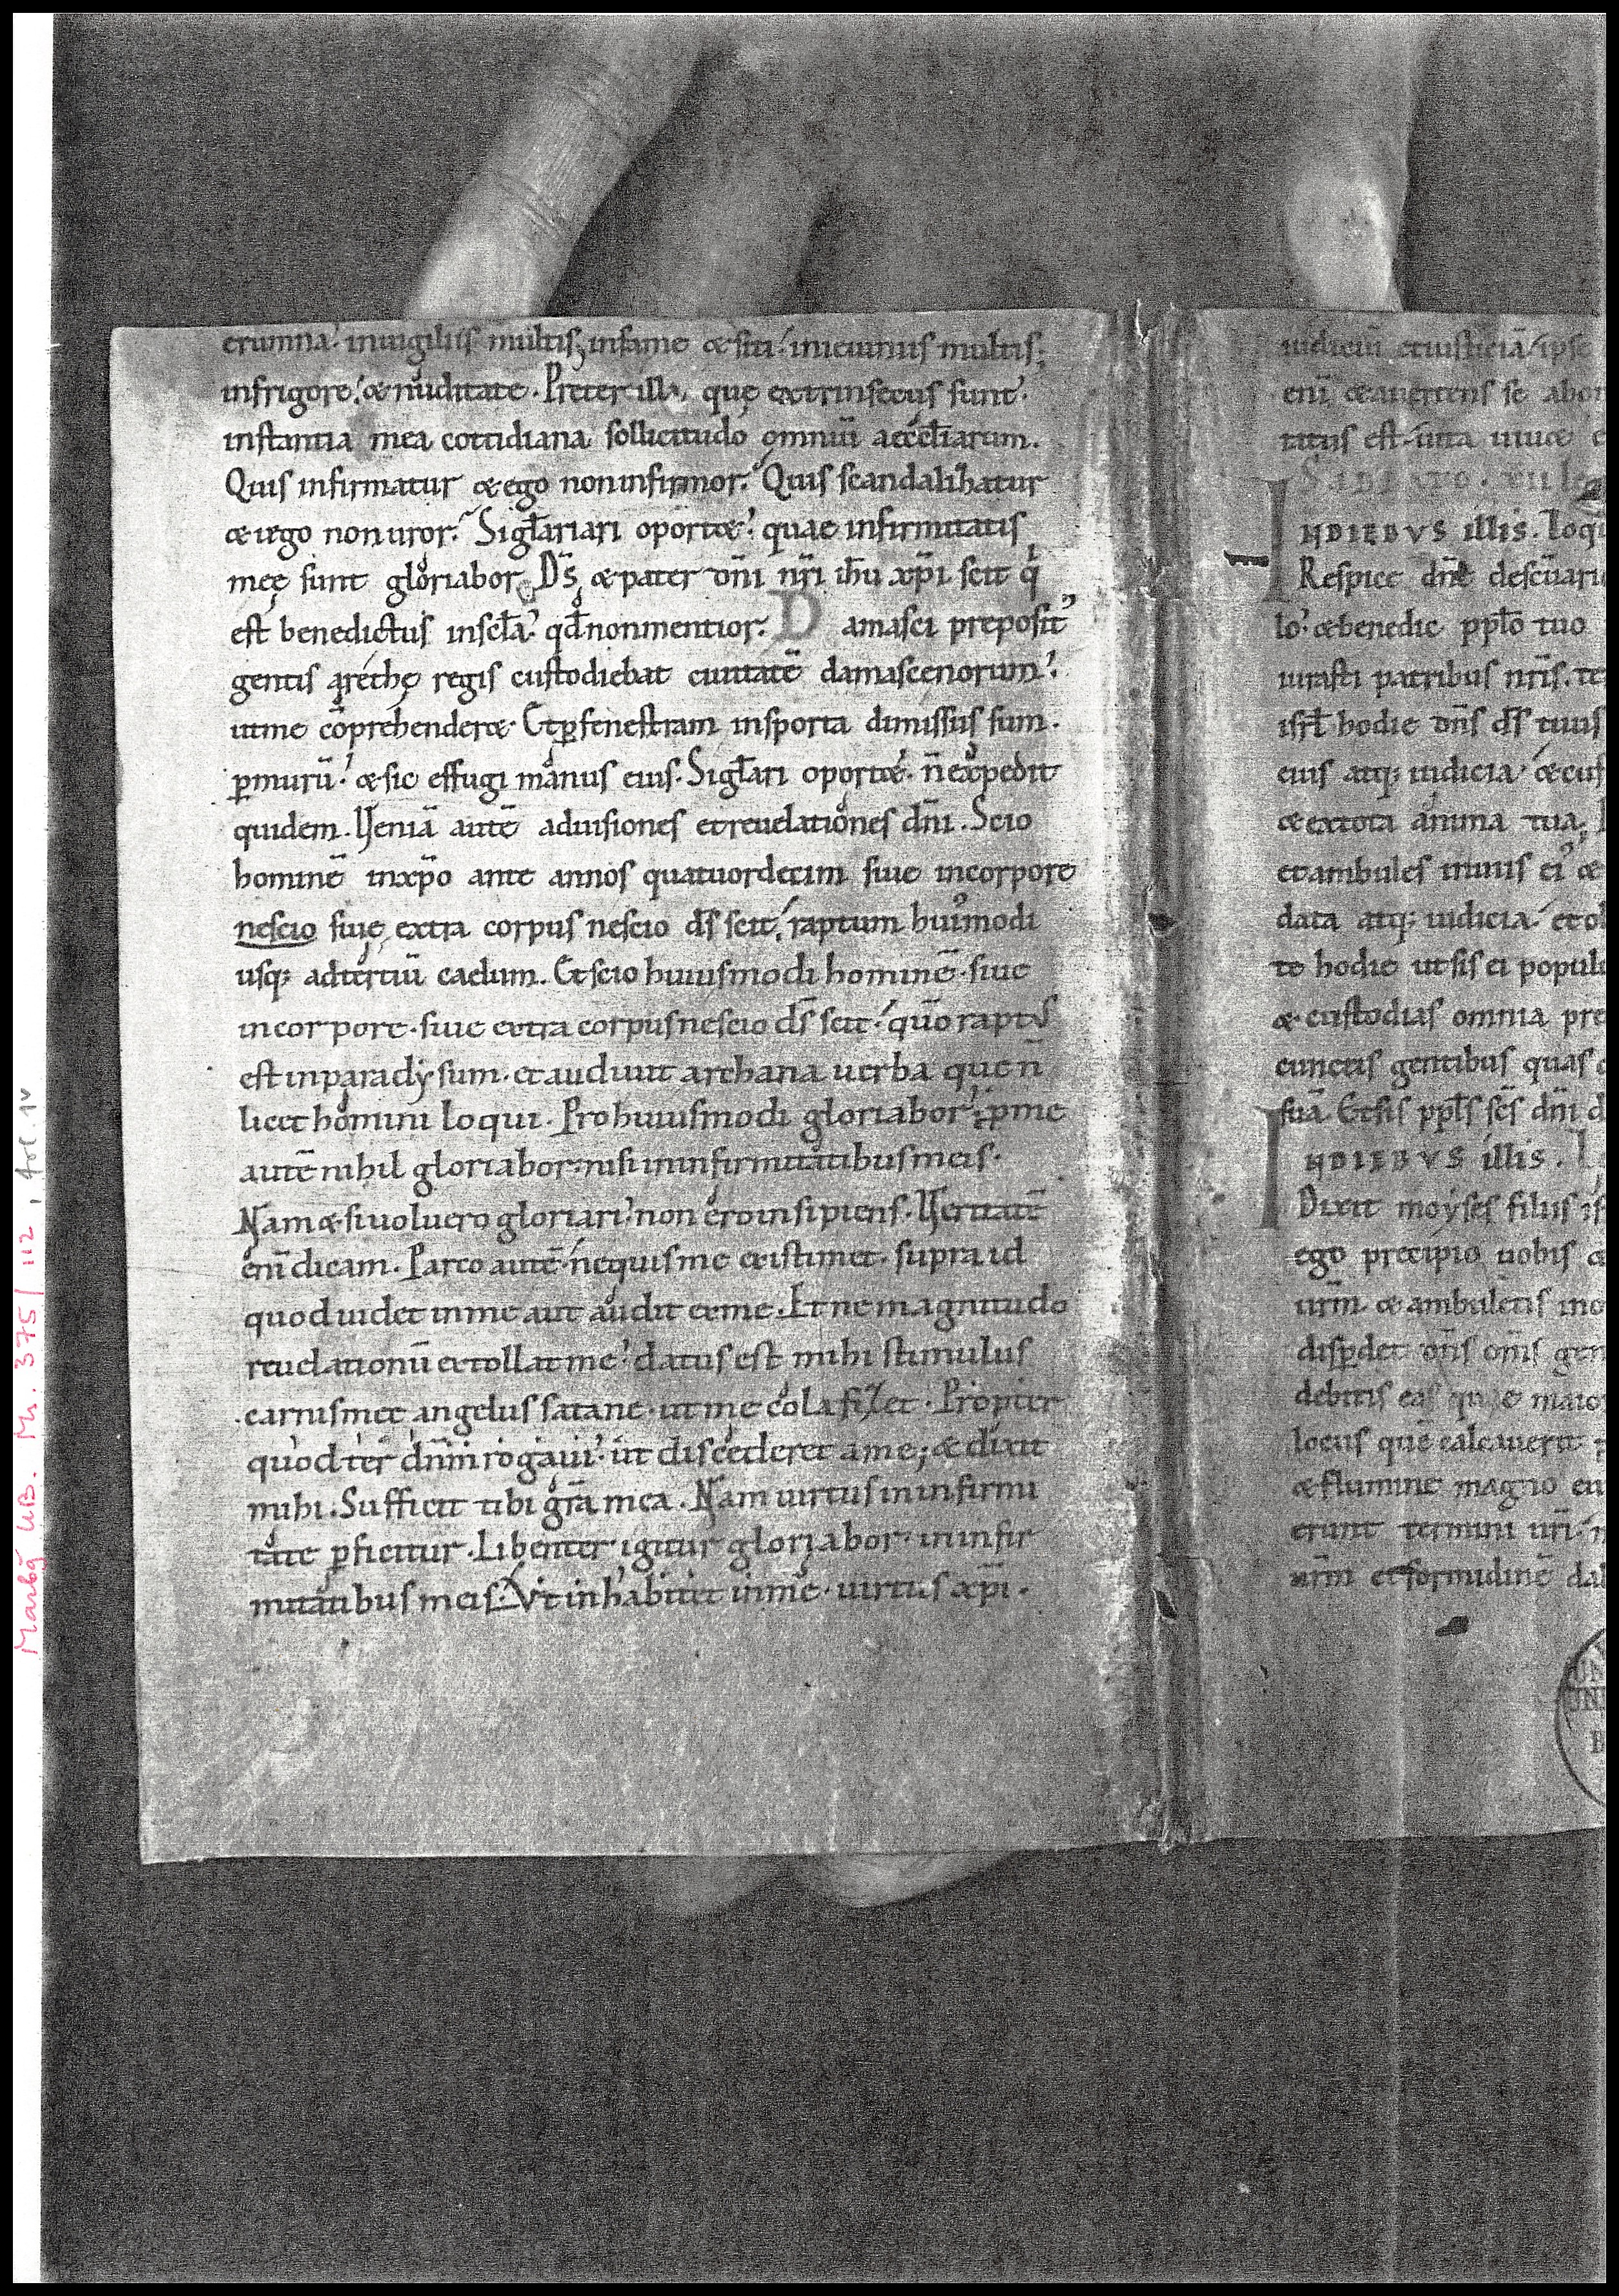 erumna. inuigiliis multis, infame & siti. ieiuniis multis;
infrigore. & nuditate. Preter illa, quę extrinsecus sunt.
instantia mea cottidiana sollicitudo omniū aecclīarum.
Quis infirmatur & ego non infirmor. Quis scandalizatur
& ego non uror. Siglāriari oport&. quae infirmitatis
meę sunt gloriabor. Ds̄ & pater dn̄i nr̄i ih̄u xp̄i scit q
est benedictus inscl̄a. qd̄ non mentior. Damasci preposit᾽
gentis arethę regis custodiebat ciuitatē damascenorum.
utme cōprehender&. Et ꝑ fenestram insporta dimissus sum.
ꝑ murū. & sic effugi manus eius. Siglāri oport&. n̄ expedit
quidem. Ueniā autē aduisiones et reuelationes dn̄i. Scio
hominē inxp̄o ante annos quatuordecim siue incorpore
nescio siue extra corpus nescio ds̄ scit, raptum hui᾽modi
usq; adtertiū caelum. Et scio huiusmodi hominē. siue
incorpore. siue extra corpus nescio ds̄ scit. quō raptus
est inparadysum. et audiuit archana uerba que n̄
licet homini loqui. Pro huiusmodi gloriabor. ꝑ me
autē nihil gloriabor. nisi ininfirmitatibus meis.
Nam & si uoluero gloriari. non ero insipiens. Ueritatē
enī dicam. Parco autē. nequis me existimet. supra id
quod uidet inme aut audit exme. Et ne magnitudo
reuelationū extollat me. datus est mihi stimulus
carnis meę angelus satane. ut me colafizet. Propter
quod ter dn̄m rogaui. ut discederet ame; & dixit
mihi. Sufficit tibi gr̄a mea. Nam uirtus ininfirmi
tate ꝑficitur. Libenter igitur gloriabor. ininfir
mitatibus meis. Vt inhabitet inme. uirtus xp̄i.
iudiciū etiusticiā. ipse
enī & auertens se abom
tatus est. uita uiu& e
SABBATO. XII le
INDIEBVS illis. Loq
Respice dn̄e desc̄uari
lo. & benedic pplō tuo
iurasti patribus nr̄is. te
isrl̄ hodie dn̄s ds̄ tuus
eius atq; iudicia. & cus
& extota anima tua.
et ambules inuiis ei᾽ &
data atq; iudicia. et ob
te hodie utsis ei popul
& custodias omnia pre
cunctis gentibus quas c
suā. Et sis ppl̄s sc̄s dn̄i d
INDIEBVS illis.
Dixit moyses filiis is
ego precipio uobis &
ur̄m & ambuletis ino
disꝑdet dn̄s om̄s gen
debitis eas quae maio
locus quē calcauerit
& flumine magno eu
erunt termini ur̄i.
ur̄m et formidinē dab
Marbg UB. Mr. 375/112, Fol. 1v